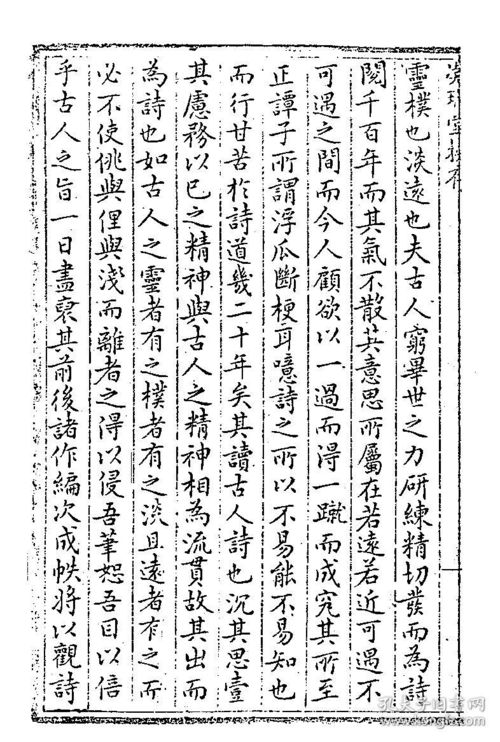 靈樸也淡遠也夫古人窮畢世之力研練精切發而為詩
閱千百年而其氣不散其意思所屬在若遠若近可遇不
可遇之間而今人顧欲以一過而得一蹴而成究其所至
正譚子所謂浮瓜斷梗耳噫詩之所以不易能不易知也
而行甘苦於詩道幾二十年矣其讀古人詩也沉其思壹
其慮務以己之精神與古人之精神相為流貫故其出而
為詩也如古人之靈者有之樸者有之淡且遠者有之而
必不使佻與俚與淺而離者之得以侵吾筆恕吾目以倍
乎古人之旨一日盡裒其前後諸作編次成帙將以觀詩
孔夫子旧书网